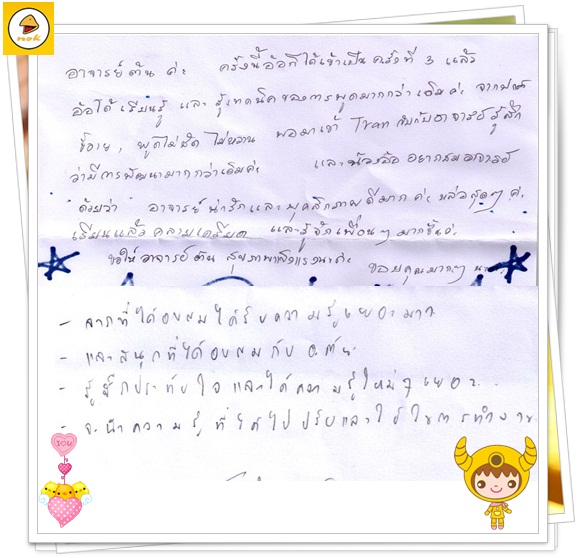 nok
อาจารย์ต้น ค่ะ ครั้งนี้อ้อก็ได้เข้าเป็นครั้งที่ 3 แล้ว
อ้อได้เรียนรู้ และ รู้เทคนิคของการพูดมากกว่าเดิมค่ะ จากคน
ขี้อาย, พูดไม่ชัด ไม่หวาน พอมาเข้า Train กับอาจารย์ รู้สึก
ว่ามีการพัฒนามากกว่าเดิมค่ะ และ อยากชมอาจารย์
ด้วยว่า อาจารย์น่ารักและบุคลิกภาพดีมากค่ะ หล่อสุดๆ ค่ะ
เรียนแล้วคลายเครียด และรู้จักเพื่อนๆ มากขึ้นค่ะ
ขอให้อาจารย์ต้น สุขภาพแข็งแรงนะค่ะ
ขอบคุณมากๆ
- จากที่ได้อบรมได้รับความรู้เยอะมาก
- และสนุกที่ได้อบรมกับ อ.ต้น
- รู้สึกประทับใจและได้ความรู้ใหม่ๆเยอะ
- จะนำความรู้ที่ได้ไปปรับและใช้ในการทำงาน
IOU